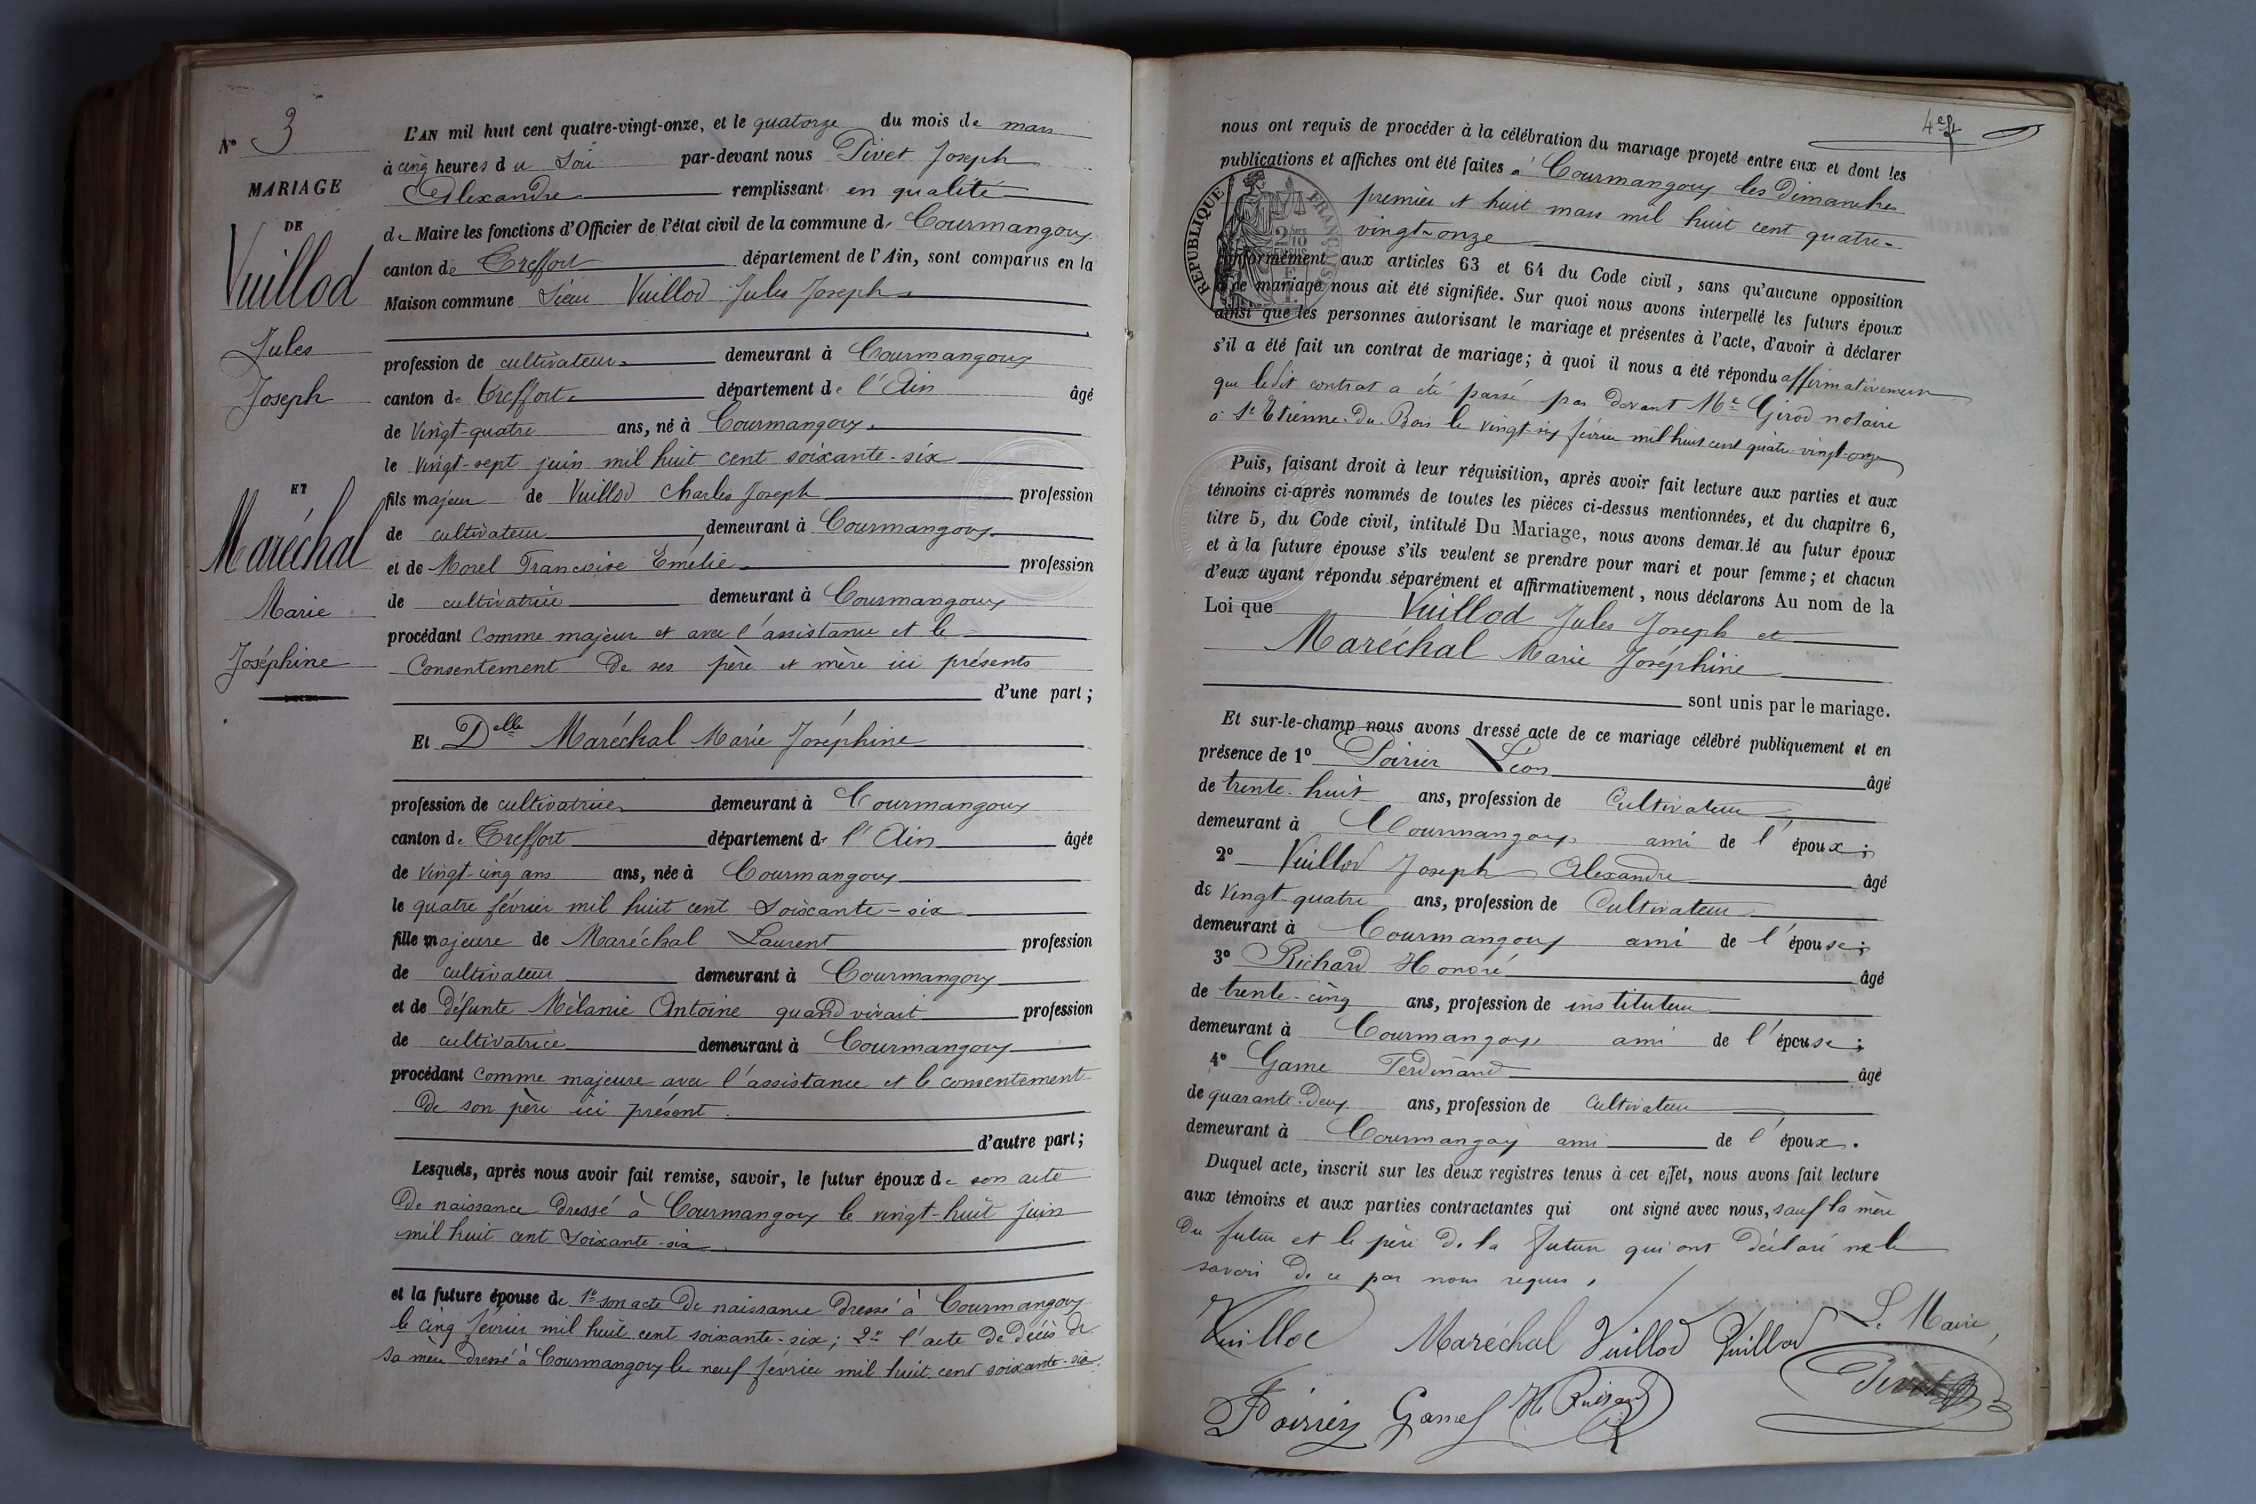 N° 3
MARIAGE
DE
Vuillod
Jules
Joseph
ET
Maréchal
Marie
Joséphine
L'AN mil huit cent quatre-vingt-onze, et le quatorze du mois de mars
à cinq heures du soir par-devant nous Pivet Joseph
Alexandre remplissant en qualité
de Maire les fonctions d'Officier de l'état civil de la commune de Courmangoux
canton de Treffort département de l'Ain, sont comparus en la
Maison commune Sieur Vuillod Jules Joseph
profession de cultivateur demeurant à Courmangoux
canton de Treffort département de l'Ain âgé
de vingt-quatre ans, né à Courmangoux
le vingt-sept juin mil huit cent soixante-six
fils majeur de Vuillod Charles Joseph profession
de cultivateur demeurant à Courmangoux
et de Morel Francoise Emélie profession
de cultivatrice demeurant à Courmangoux
procédant comme majeur et avec l'assistance et le
consentement de ses père et mère ici présents
d'une part;
Et Delle Maréchal Marie Joséphine
profession de cultivatrice demeurant à Courmangoux
canton de Treffort département de l'Ain âgée
de vingt-cinq ans ans, née à Courmangoux
le quatre février mil huit cent soixante-six
fille majeure de Maréchal Laurent profession
de cultivateur demeurant à Courmangoux
et de défunte Mélanie Antoine quand vivait profession
de cultivatrice demeurant à Courmangoux
procédant comme majeure avec l'assistance et le consentement
de son père ici présent.
d'autre part;
Lesquels, après nous avoir fait remise, savoir, le futur époux de son acte
de naissance dressé à Courmangoux le vingt-huit juin
mil huit cent soixante-six
et la future épouse de 1° son acte de naissance dressé à Courmangoux
le cinq février mil huit cent soixante-six; 2° l'acte de décès de
sa mère dressé à Courmangoux le neuf février mil huit cent soixante-six.
nous ont requis de procéder à la célébration du mariage projeté entre eux et dont les
publications et affiches ont été faites à Courmangoux les dimanches
premier et huit mars mil huit cent quatre-
vingt-onze
REPUBLIQUE FRANÇAISE
conformément aux articles 63 et 64 du Code civil, sans qu'aucune opposition
à ce mariage nous ait été signifiée. Sur quoi nous avons interpellé les futurs époux
ainsi que les personnes autorisant le mariage et présentes à l'acte, d'avoir à déclarer
s'il a été fait un contrat de mariage; à quoi il nous a été répondu affirmativement
que ledit contrat a été passé par devant Me Girod notaire
à St Etienne-du-Bois le vingt-six février mil huit cent quatre-vingt-onze
Puis, faisant droit à leur réquisition, après avoir fait lecture aux parties et aux
témoins ci-après nommés de toutes les pièces ci-dessus mentionnées, et du chapitre 6,
titre 5, du Code civil, intitulé Du Mariage, nous avons demandé au futur époux
et à la future épouse s'ils veulent se prendre pour mari et pour femme; et chacun
d'eux ayant répondu séparément et affirmativement, nous déclarons Au nom de la
Loi que Vuillod Jules Joseph et
Maréchal Marie Joséphine
sont unis par le mariage.
Et sur-le-champ nous avons dressé acte de ce mariage célébré publiquement et en
présence de 1° Poirier Léon âgé
de trente-huit ans, profession de Cultivateur
demeurant à Courmangoux ami de l'époux;
2° Vuillod Joseph Alexandre âgé
de vingt-quatre ans, profession de Cultivateur
demeurant à Courmangoux ami de l'épouse;
3° Richard Honoré âgé
de trente-cinq ans, profession de instituteur
demeurant à Courmangoux ami de l'épouse;
4° Game Ferdinand âgé
de quarante-deux ans, profession de cultivateur
demeurant à Courmangoux ami de l'époux.
Duquel acte, inscrit sur les deux registres tenus à cet effet, nous avons fait lecture
aux témoins et aux parties contractantes qui ont signé avec nous, sauf la mère
du futur et le père de la future qui ont déclaré ne le
savoir de ce par nous requis.
Vuillod Maréchal Vuillod Vuillod Le Maire,
Poirier Game Pivet